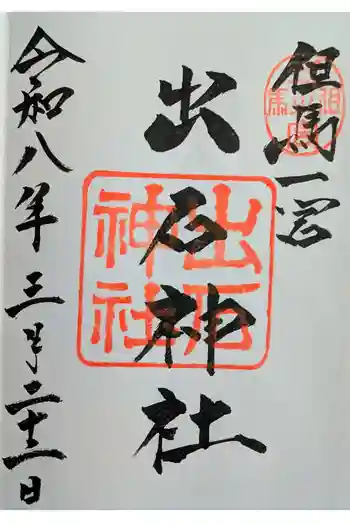 但馬一宮
出石神社
出石神社
令和八年三月二十一日